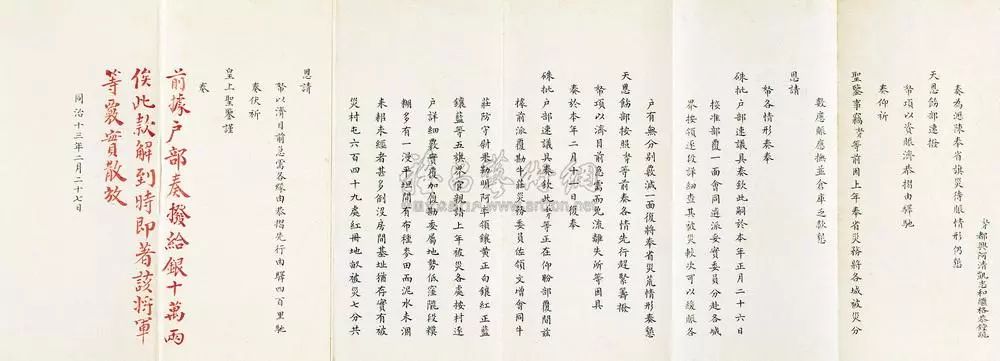 奴才都興阿清凱志和繼格恭鏜跪
奏為瀝陳奉省旗災待賑情形仍懇
天恩飭部速撥
帑項以資賑濟恭摺由驛馳
奏仰祈
聖鑒事竊奴才等前因上年奉省災務將各城被災分
數應賑應撫並倉庫乏款懇
恩請
帑各情形奏奉
硃批戶部速議具奏欽此嗣於本年正月二十六日
接准部覆一面會同遴派妥實委員分赴各城
界按領逐段詳細查其被災較次可以緩賑各
戶有無分別覈減一面復將奉省災荒情形奏懇
天恩飭部按照奴才等前奏各情先行趕緊籌撥
帑項以濟目前急需而免流離失所等因具
奏於本年二月十八日復奉
硃批戶部速議具奏欽此奴才等正在仰盼部覆間茲
據前派覆勘牛莊災務委員佐領文增會同牛
莊防守尉果勒明阿率領鑲黃正白鑲紅正藍
鑲藍等五旗界官親詣上年被災各處按村逐
戶詳細覈實覆加履勘委屬地勢低窪隴段模
糊多有一漫平坦間有布種麥田而泥水未涸
來耕未經者甚多倒沒房間基址猶存實有被
災村屯六百四十九處紅冊地畝被災七分共
恩請
帑以濟目前急需各緣由恭摺先行由驛四百里馳
奏伏祈
皇上聖鑒謹
奏
前據戶部奏撥給銀十萬兩
俟此款解到時即著該將軍
等覈實散放
同治十三年二月二十七日